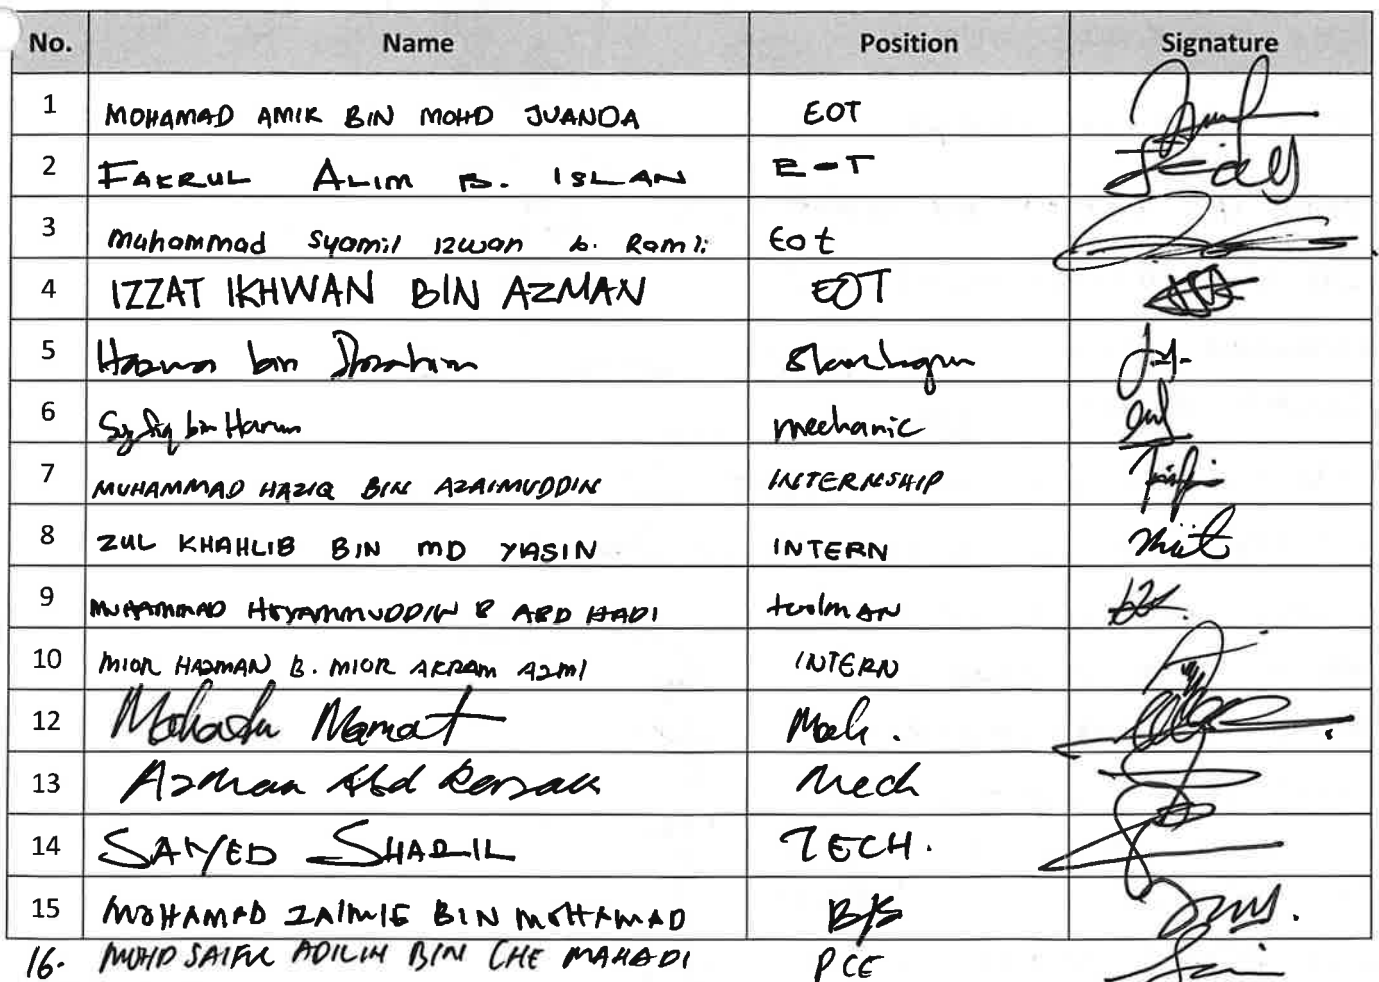 No. Name Position Signature
1 MOHAMAD AMIR BIN MOHD JUANDA EOT
2 FAKRUL ALIM B. ISLAN EOT
3 Muhammad Syamil Izwan b. Ramli Eot
4 IZZAT IKHWAN BIN AZMAN EOT
5 bin Ibrahim
6 bin Harun mechanic
7 MUHAMMAD HAZIQ BIN AZAIMUDDIN INTERNSHIP
8 ZUL KHAHLIB BIN MD YASIN INTERN
9 B ABD HADI toolman
10 MIOR HAZMAN B. MIOR AKRAM AZMI INTERN
12 Mamat Mech.
13 Azman Abd Razak Mech
14 SAYED SHARIL TECH.
15 MOHAMAD ZAIMIE BIN MOHAMAD B/S
16. MOHD SAIFUL ADILIN BIN CHE MAHADI PCE